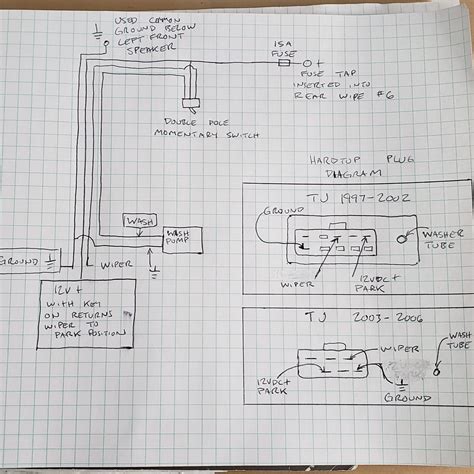 USED COMMON
GROUND BELOW
LEFT FRONT
SPEAKER
15A
FUSE
+
FUSE TAP
INSERTED INTO
REAR WIPE #6
DOUBLE POLE
MOMENTARY SWITCH
WASH
WASH
PUMP
GROUND
WIPER
12V +
WITH KEY
ON RETURNS
WIPER TO
PARK POSITION
HARDTOP PLUG
DIAGRAM
TJ 1997-2002
GROUND
WASHER
TUBE
WIPER
12VDC+
PARK
TJ 2003-2006
WIPER
WASH
TUBE
12VDC+
PARK
GROUND